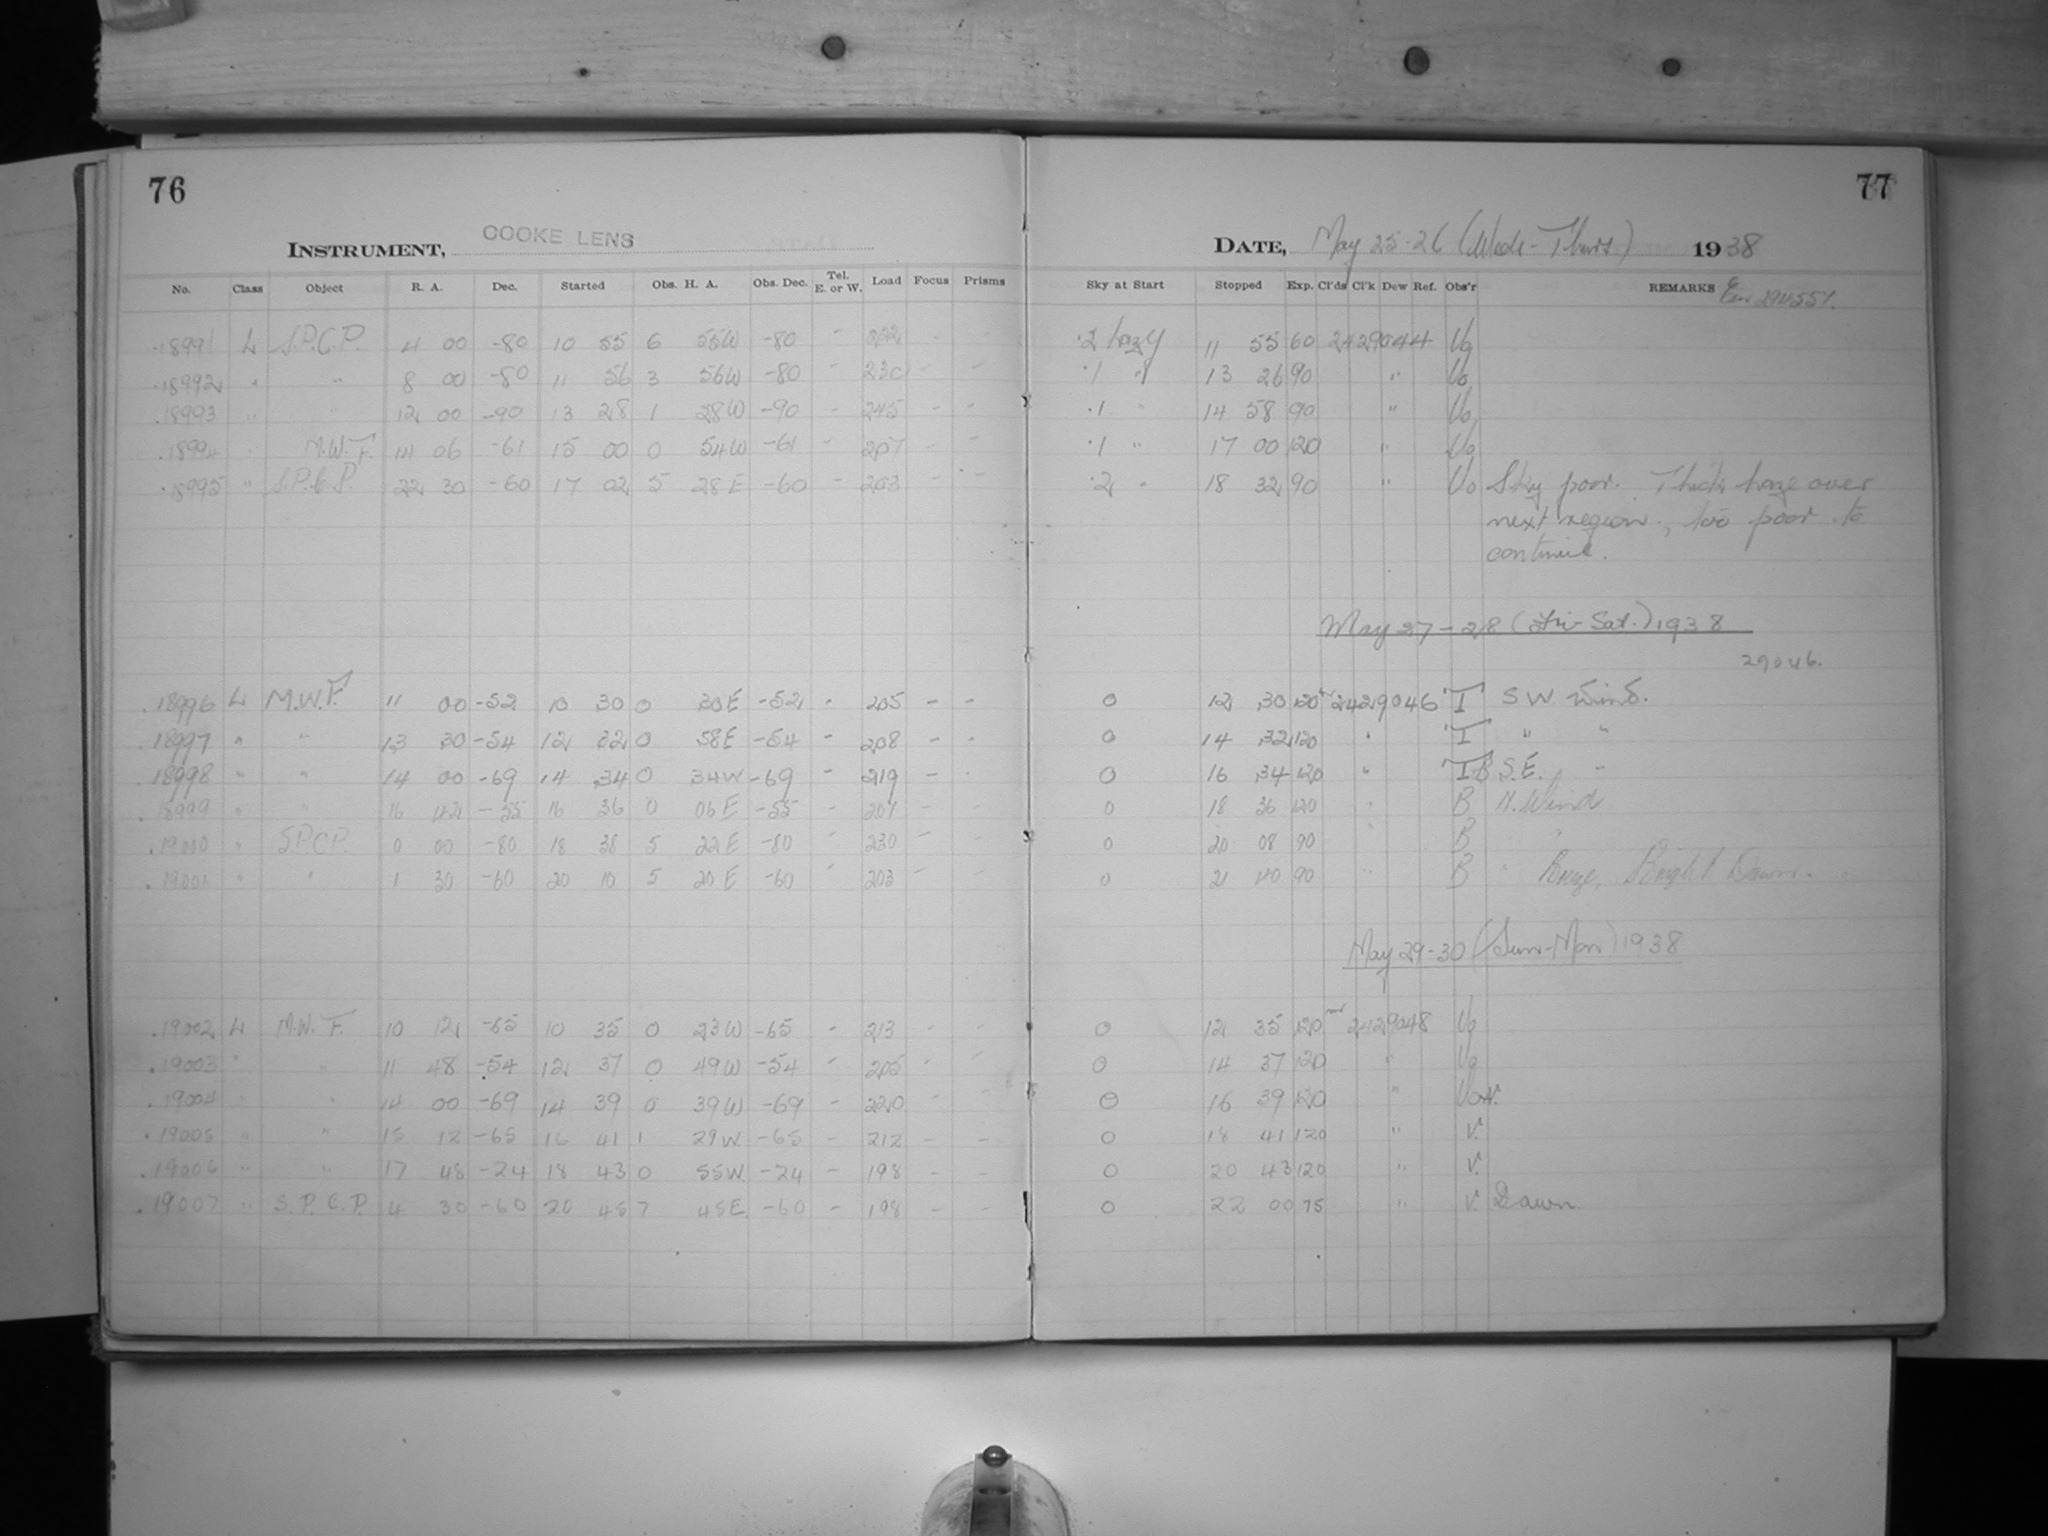 76
INSTRUMENT, COOKE LENS
No. Class Object R. A. Dec. Started Obs. H. A. Obs. Dec. Tel. E. or W. Load Focus Prisms
18991 L S.P.C.P. 4 00 -80 10 55 6 55W -80 - 222 - -
18992 " " 8 00 -80 11 56 3 56W -80 - 230 - -
18993 " " 12 00 -90 13 28 1 28W -90 - 245 - -
18994 " M.W.F. 14 06 -61 15 00 0 54W -61 - 207 - -
18995 " S.P.C.P. 22 30 -60 17 02 5 28E -60 - 203 - -
18996 L M.W.F. 11 00 -52 10 30 0 30E -52 - 205 - -
18997 " " 13 30 -54 12 32 0 58E -54 - 208 - -
18998 " " 14 00 -69 14 34 0 34W -69 - 219 - -
18999 " " 16 42 -55 16 36 0 06E -55 - 207 - -
19000 " S.P.C.P. 0 00 -80 18 38 5 22E -80 - 230 - -
19001 " " 1 30 -60 20 10 5 20E -60 - 203 - -
19002 L M.W.F. 10 12 -65 10 35 0 23W -65 - 213 - -
19003 " " 11 48 -54 12 37 0 49W -54 - 205 - -
19004 " " 14 00 -69 14 39 0 39W -69 - 220 - -
19005 " " 15 12 -65 16 41 1 29W -65 - 212 - -
19006 " " 17 48 -24 18 43 0 55W. -24 - 198 - -
19007 " S.P.C.P. 4 30 -60 20 45 7 45E. -60 - 198 - -
77
DATE, May 25-26 (Wed-Thurs) 1938
Sky at Start Stopped Exp. Cl'ds Cl'k Dew Ref. Obs'r REMARKS
.2 hazy 11 55 60 2429044
.1 " 13 26 90 "
.1 " 14 58 90 "
.1 " 17 00 120 "
.2 " 18 32 90 " Sky poor. Thick haze over
next region, too poor to
continue.
May 27-28 (Fri-Sat.) 1938
29046.
0 12 30 120 2429046 T S W Wind.
0 14 32 120 " T " "
0 16 34 120 " TB S.E. "
0 18 36 120 " B N. Wind
0 20 08 90 " B "
0 21 40 90 " B " Bright Dawn.
May 29-30 (Sun-Mon) 1938
0 12 35 120 2429048
0 14 37 120 "
0 16 39 120 "
0 18 41 120 " V.
0 20 43 120 " V.
0 22 00 75 " V. Dawn